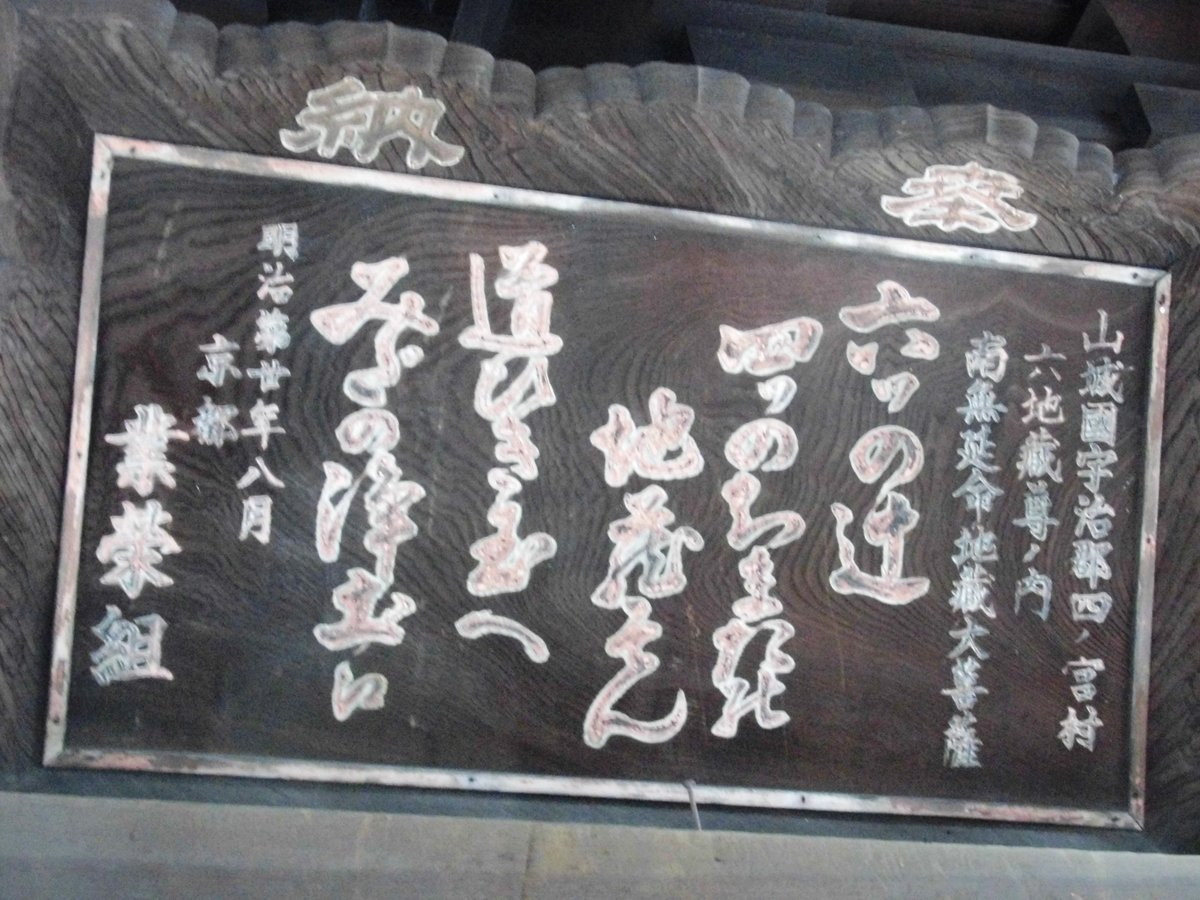 奉納
山城國宇治郡四ノ宮村
六地藏尊ノ内
南無延命地藏大菩薩
六ツの辻
四ツのちまた能
地蔵そん
道びき玉へ
みだの浄土に
明治第廿年八月
京都
業榮組